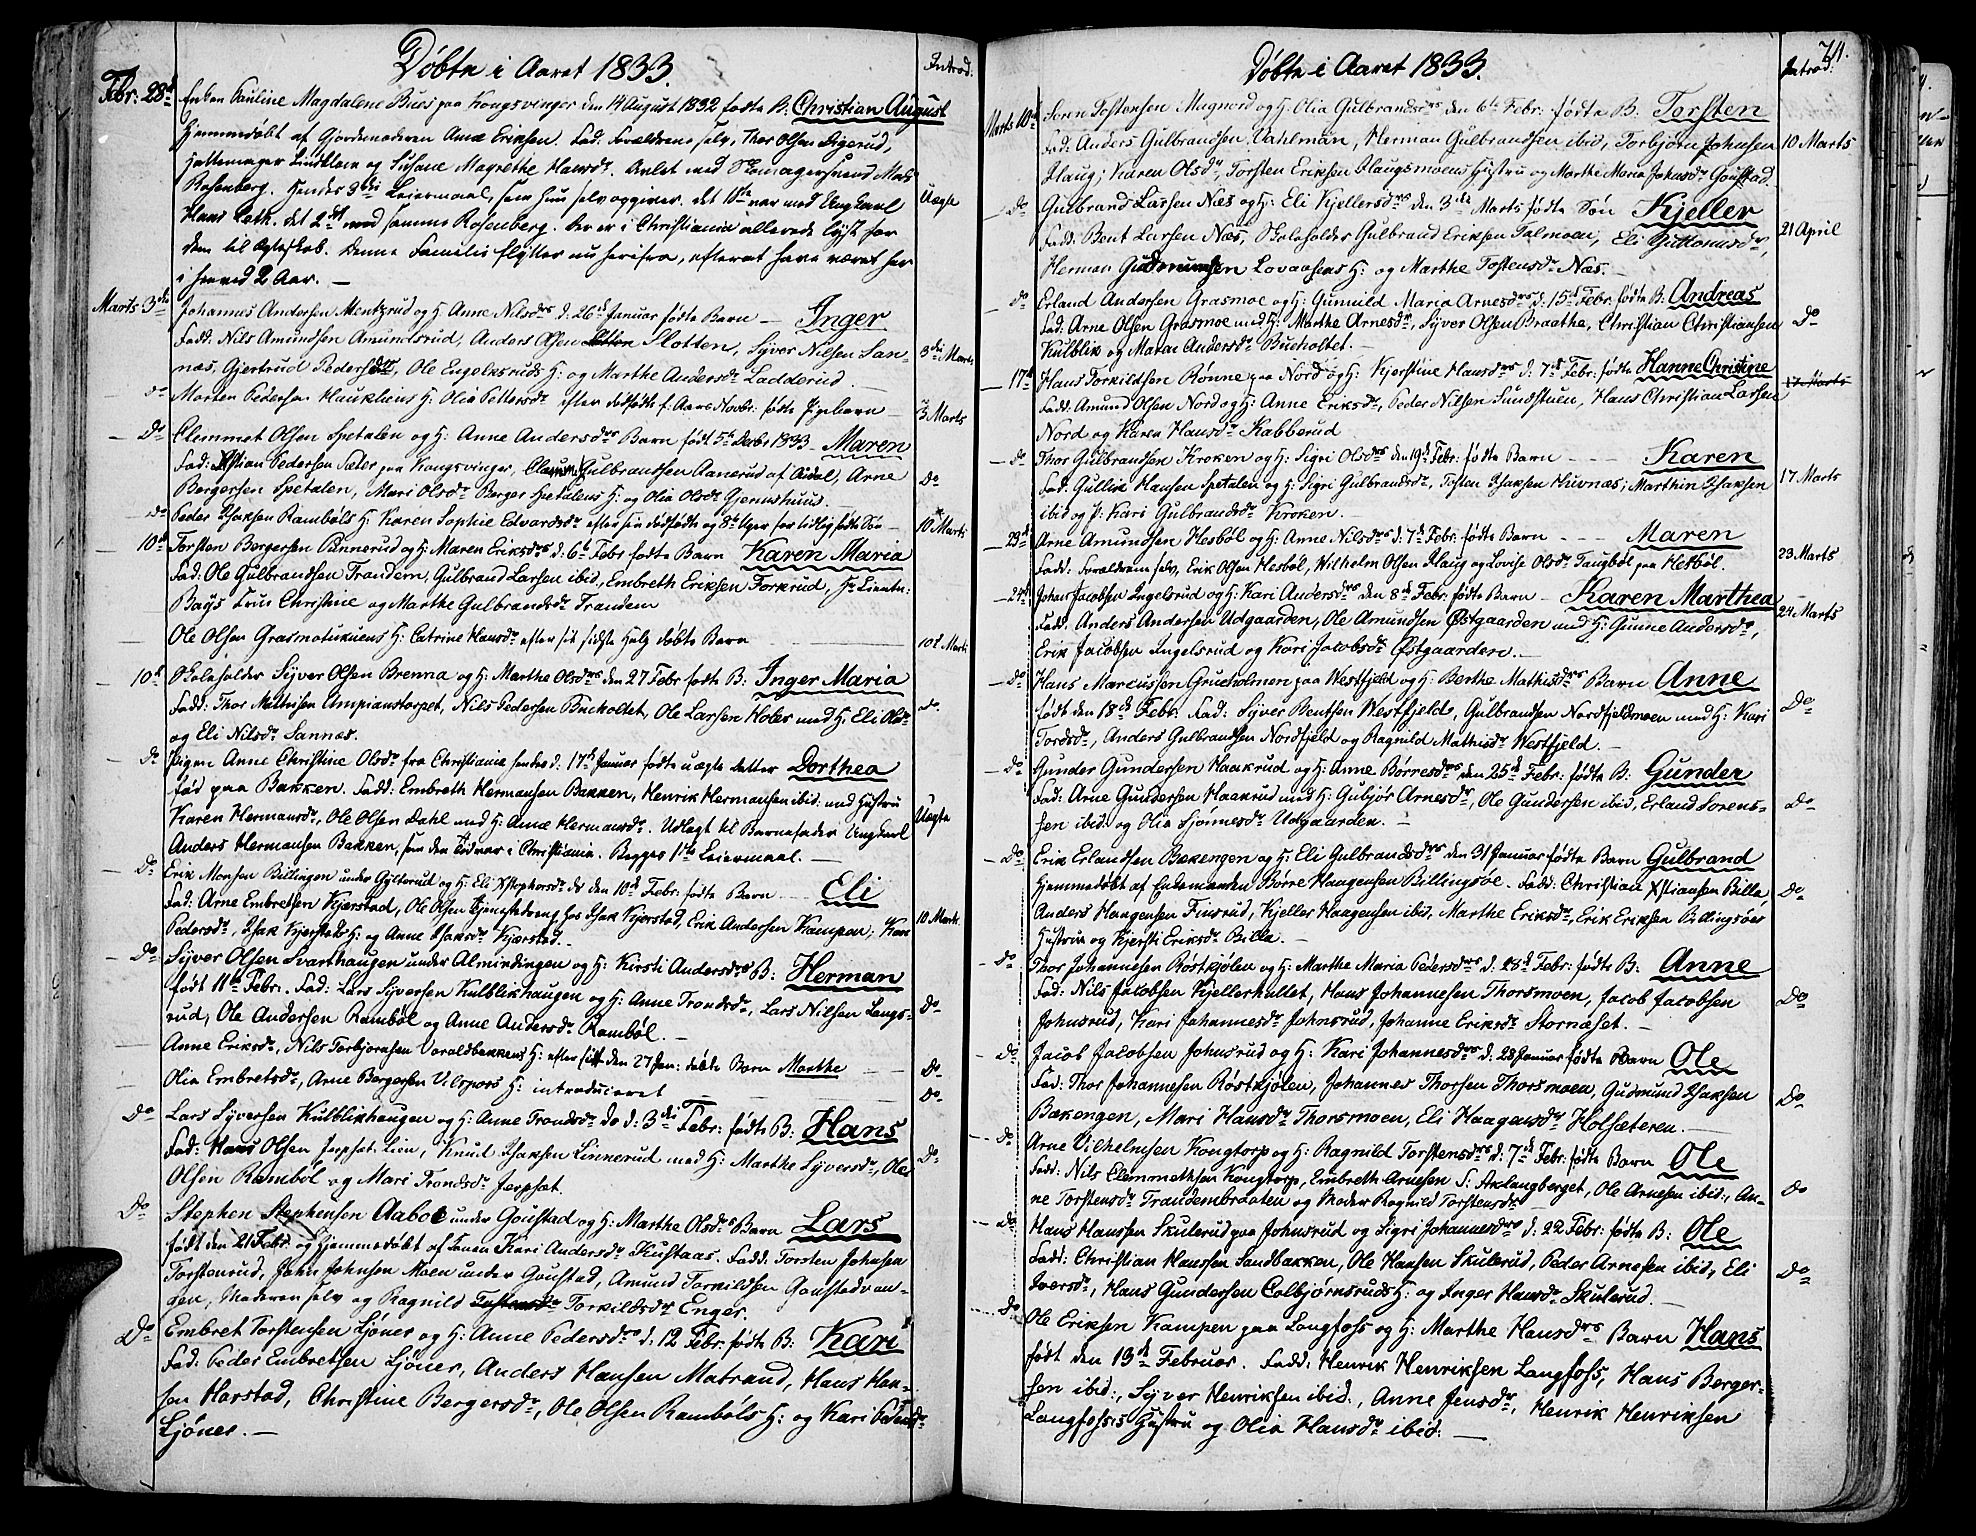 Døbte i Aaret 1833.
Introd:
Febr: 28de Enken Pauline Magdalene Buus paa Kongsvinger den 14 August 1832 fødte B. Christian August
hjemmedøbt af Gjordemoderen Anne Eriksen. Fad. Forældrene selv, Thor Olsen Digerud,
Lindstein og Susane Magrethe Hansdr. Avlet med Skomagersvend Mats
Rosenberg. Hendes 3die Leiermaal, som hun selv opgiver. det 1ste var med Ungkarl Uægte
Hans Leth. det 2det med samme Rosenberg. Der er i Christiania allerede lyst for
dem til Ægteskab. Denne Familie flytter nu herifra, efterat have været her
i henved 2 Aar. —
Marts 3die Johannes Andersen Mentzrud og H: Anne Nilsdrs d. 26d Januar fødte Barn — Inger
Fadd. Nils Amundsen Amundsrud, Anders Olsen Slotten, Syver Nilsen San- 3die Marts
næs, Gjertrud Pedersdr, Ole Engelsruds H: og Marthe Andersdr Ladderud. —
do Morten Pedersen Hauklius H: Olia Pettersdr efter dødfødte f. Aars Novbr: fødte Pigebarn — 3 Marts
— Do Clemmet Olsen Spetalen og H: Anne Andersdrs Barn født 5te Decbr 1833. Maren
Fad: Xstian Pedersen Sæter paa Kongsvinger, Gulbrandsen Aanerud af Eidal, Arne
Bergersen Spetalen, Mari Olsdr Berger Spetalens H: og Olia Olsdr Gjemshuus. Do
do Peder Isaksen Rambøls H: Karen Sophie Edvardsdr efter sin dødfødte og 8te Uger for tidlig fødte Søn — 10 Marts
— 10d Torsten Bergersen Pinnerud og H: Maren Eriksdrs d. 6te Febr fødte Barn Karen Maria
Fad: Ole Gulbrandsen Trandem, Gulbrand Larsen ibid, Embreth Eriksen Forkrud, Hr Lieutn:
Bays Frue Christine og Marthe Gulbrandsdr Trandem
— Ole Olsen Grasmotukuens H: Catrine Hansdr efter sit sidste Helg døbte Barn 10d Marts
— 10d Skoleholder Syver Olsen Brenna og H: Marthe Olsdrs den 27 Febr fødte B: Inger Maria
Fadd: Thor Mathisen Ampianstorpet, Nils Pedersen Bucholtet, Ole Larsen Holer med H: Eli Olsdr do
og Eli Nilsdr Sannæs.
— Do Pigen Anne Christine Olsdr fra Christiania hendes d: 17d Januar fødte uægte datter Dorthea
fød paa Bakken. Fadd: Embreth Hermansen Bakken, Henrik Hermansen ibid: med Hustru
Karen Hermansdr, Ole Olsen Dahl med H: Anne Hermansdr. Udlagt til Barnefader Ungkarl Uægte
Anders Hermansen Bakken, som den Tid var i Christiania. Begges 1ste Leiermaal. —
— Do Erik Monsen Billingen under Gylterud og H: Eli Xstophersdr den 10d Febr: fødte Barn — Eli
Fad: Arne Embretsen Kjerstad, Ole Olsen tjenestedreng hos Isak Kjerstad, Erik Andersen Kampen, Kari 10 Marts
Pedersdr, Isak Kjerstads H: og Anne Isaksdr Kjerstad. —
— Do Syver Olsen Svarthaugen under Almindingen og H: Kirsti Andersdrs B: Herman
født 11te Febr. Fad: Lars Syversen Kulblikhaugen og H: Anne Trondsdr, Lars Nilsen Langs-
rud, Ole Andersen Rambøl og Anne Andersdr Rambøl. — Do
— Anne Eriksdr, Nils Torbjørnsen Voraldbakkens H: efter sit den 27 Jan: døbte Barn Marthe — Do
— Olia Embretsdr, Arne Bergersen Vilspors H: introduceret — Do
Do Lars Syversen Kulblikhaugen og H: Anne Trondsdr do d: 3die Febr: fødte B: Hans
Fad: Hans Olsen Jerpset Lien, Knud Isaksen Linnerud med H: Marthe Syversdr, Ole Do
Olsen Rambøl og Mari Trondsdr Jerpset.
Do Stephen Stephensen Aaboe under Goustad og H: Marthe Olsdrs Barn Lars
født den 21 Febr. og hjemmedøbt af Konen Kari Andersdr Kustaas. Fadd: Torsten Johnsen
Torstenrud, John Johnsen Moen under Goustad, Amund Torkildsen Goustadvan-
gen, Moderen selv og Ragnild Torkildsdr Enger.
Do Embret Torstensen Sjøner og H: Anne Pedersdrs d. 12 Febr. fødte B: Kari
Fad: Peder Embretsen Sjøner, Anders Hansen Matrand, Hans Han-
sen Harstad, Christine Bergersdr, Ole Olsen Rambøls H: og Kari Pedersdr
Sjøner. —
Døbte i Aaret 1833. 74.
Introd:
Marts 10d Søren Tostensen Magnord og H. Olia Gulbrandsdrs den 6te Febr. fødte B. Torsten
Fad. Anders Gulbrandsen Vahlman, Herman Gulbrandsen ibid, Torbjørn Johnsen 10 Marts
Haug; Karen Olsdr, Torsten Eriksen Haugsmoens Hustru og Marthe Maria Johnsdr Goustad.
— do Gulbrand Larsen Næs og H: Eli Kjellersdrs den 3die Marts fødte Søn Kjeller
Fadd: Bent Larsen Næs, Skoleholder Gulbrand Eriksen Talmoen, Eli Guttormsdr, 21 April
Herman Gudmundsen Lovaasens H: og Marthe Tostensdr Næs. —
— do Erland Andersen Grasmoe og H: Gunnild Maria Arnesdrs d. 15d Febr. fødte B. Andreas
Fad: Arne Olsen Grasmoe med H: Marthe Arnesdr, Syver Olsen Braathe, Christian Christiansen Do
Kulblik og Maren Andersdr Bucholtet. —
— 17d Hans Torkildsen Rønne paa Nord og H: Kjerstine Hansdrs d. 7d Febr. fødte Hanne Christine
Fadd: Amund Olsen Nord og H: Anne Eriksdr, Peder Nilsen Sundstuen, Hans Christian Larsen 17 Marts
Nord og Karen Hansdr Kabberud
— do Thor Gulbrandsen Kroken og H: Sigri Olsdrs den 19d Febr. fødte Barn — Karen
Fad: Gullik Hansen Spetalen og H: Sigri Gulbrandsdr, Tosten Isaksen Hivnæs; Marthin Isaksen 17 Marts
ibid og P: Kari Gulbrandsdr Kroken. —
— 23d Arne Amundsen Hesbøl og H: Anne Nilsdrs d: 7d Febr. fødte Barn — Maren
Fadd: Forældrene selv, Erik Olsen Hesbøl, Wilhelm Olsen Haug og Lovise Olsdr Taugbøl paa Hesbøl. 23 Marts
— 24d Johan Jacobsen Ingelsrud og H: Kari Andersdrs den 8d Febr. fødte Barn — Karen Marthea
Fadd: Anders Andersen Udgaarden, Ole Amundsen Østgaarden med H: Gunne Andersdr, 24 Marts
Erik Jacobsen Ingelsrud og Kari Jacobsdr Østgaarden. —
— Do Hans Marcussen Grueholmen paa Westfjeld og H: Berthe Mathisdrs Barn Anne
født den 18d Febr. Fad: Syver Bentsen Westfjeld, Gulbrandsen Nordfjeldmoen med H: Kari Do
Tordsdr, Anders Gulbrandsen Nordfjeld og Ragnild Mathisdr Westfjeld. —
— Do Gunder Gundersen Haakrud og H: Anne Børresdrs den 25d Febr: fødte B: Gunder
Fad: Arne Gundersen Haakrud med H: Gubjør Arnesdr, Ole Gundersen ibid, Erland Sørens- Do
sen ibid. og Olia Sjønnesdr Udgaarden. —
— Do Erik Erlandsen Bækengen og H: Eli Gulbrandsdrs den 31 Januar fødte Barn Gulbrand
hjemmedøbt af Enkemanden Børre Haagensen Billingsøe. Fadd: Christian Xstiansen Billa, Do
Anders Haagensen Finsrud, Kjeller Haagensen ibid, Marthe Eriksdr, Erik Eriksen Billingsøes
Hustru og Kjersti Eriksdr Billa. —
— Do Thor Johannesen Røstkjølen og H: Marthe Maria Pedersdrs d. 28d Febr: fødte B: Anne
Fad: Nils Jacobsen Kjellerhullet, Hans Johannesen Thorsmoen, Jacob Jacobsen Do
Johnsrud, Kari Johannesdr Johnsrud, Johanne Eriksdr Stornæset. —
— Do Jacob Jacobsen Johnsrud og H: Kari Johannesdrs d: 28 Januar fødte Barn Ole
Fad: Thor Johannesen Røstkjølen, Johannes Thorsen Thorsmoen, Gudmund Isaksen Do
Bækengen, Mari Hansdr Thorsmoen, Eli Haagensdr Holsæteren. —
— do Arne Vilhelmsen Kongtorp og H: Ragnild Torstensdrs d: 7d Febr: fødte Barn Ole
Fadd: Nils Clemmethsen Kongtorp, Embreth Arnesen S: Axlangberget, Ole Arnesen ibid:, An- Do
ne Torstensdr Trandembraaten og Moder Ragnild Torstensdr
— do Hans Hansen Skulerud paa Johnsrud og Sigri Johannesdrs d: 22 Febr: fødte B: Ole
Fadd: Christian Hansen Sandbakken, Ole Hansen Skulerud, Peder Arnesen ibid, Eli Do
Iversdr, Hans Gundersen Colbjørnsruds H: og Inger Hansdr Skulerud. —
do Ole Eriksen Kampen paa Langfoss og H: Marthe Hansdrs Barn Hans
født den 13d Februar. Fadd: Henrik Henriksen Langfoss, Hans Berger-
sen ibid:, Syver Henriksen ibid., Anne Jensdr, Henrik Henriksen
Langfoss's Hustru og Olia Hansdr ibid: —